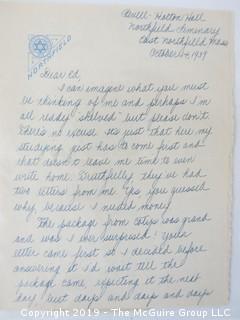 Buell-Holton Hall
Northfield Seminary
East Northfield Mass
October 4, 1939
NORTHFIELD
Dear Ed,
I can imagine what you must
be thinking of me and perhaps I'm
all ready "shelved" but please don't
There's no excuse its just that here my
studying just has to come first and
that doesn't leave me time to even
write home. Truthfully, they've had
two letters from me "yes you guessed
why, because I needed money.
The package from was grand
and was I ever surprised! Your
letter came first so I decided before
answering it I'd wait till the
package came expecting it the next
day, but days and days and days
Copyright 2019 - The McGuire Group LLC